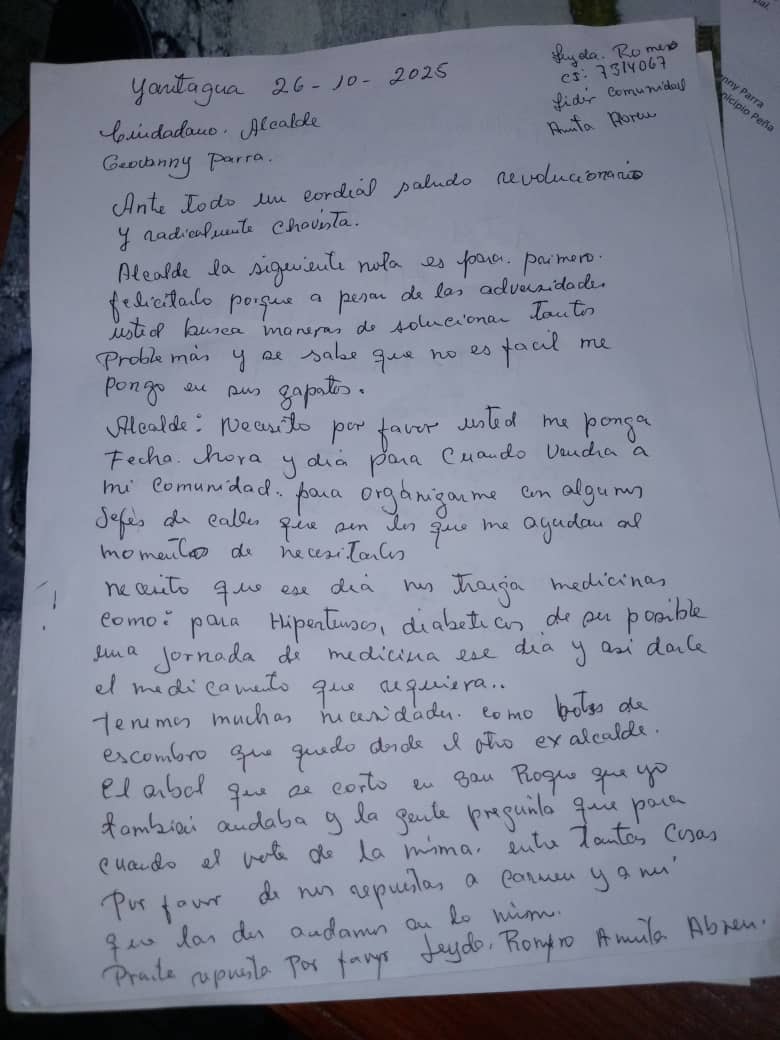 Yaritagua 26-10-2025
Leyda. Romero
CI: 7314067
Lider Comunidad
Amita Abreu
Ciudadano. Alcalde
Geovanny Parra.
Ante todo un cordial saludo revolucionario
y radicalmente chavista.
Alcalde la siguiente nota es para. primero.
felicitarlo porque a pesar de las adversidades
usted busca maneras de solucionar tantos
problemas y se sabe que no es facil me
pongo en sus zapatos.
Alcalde: Necesito por favor usted me ponga
Fecha. hora y dia para Cuando Vendra a
mi Comunidad. para organizarme con algunos
Jefes de calles que son los que me ayudan al
momento de necesitarlos
necesito que ese dia nos traiga medicinas
como: para Hipertensos, diabeticos de ser posible
una jornada de medicina ese dia y asi darle
el medicamento que requiera..
tenemos muchas necesidades. como botes de
escombro que quedo desde el otro exalcalde.
El arbol que se corto en San Roque que yo
tambien andaba y la gente pregunta que para
cuando el bote de la misma. entre tantas cosas
Por favor de nos repuestas a Carmen y a mi
que las dos andamos en lo mismo.
repuesta Por favor Leyda. Romero Amita Abreu.
nny Parra
nicipio Peña